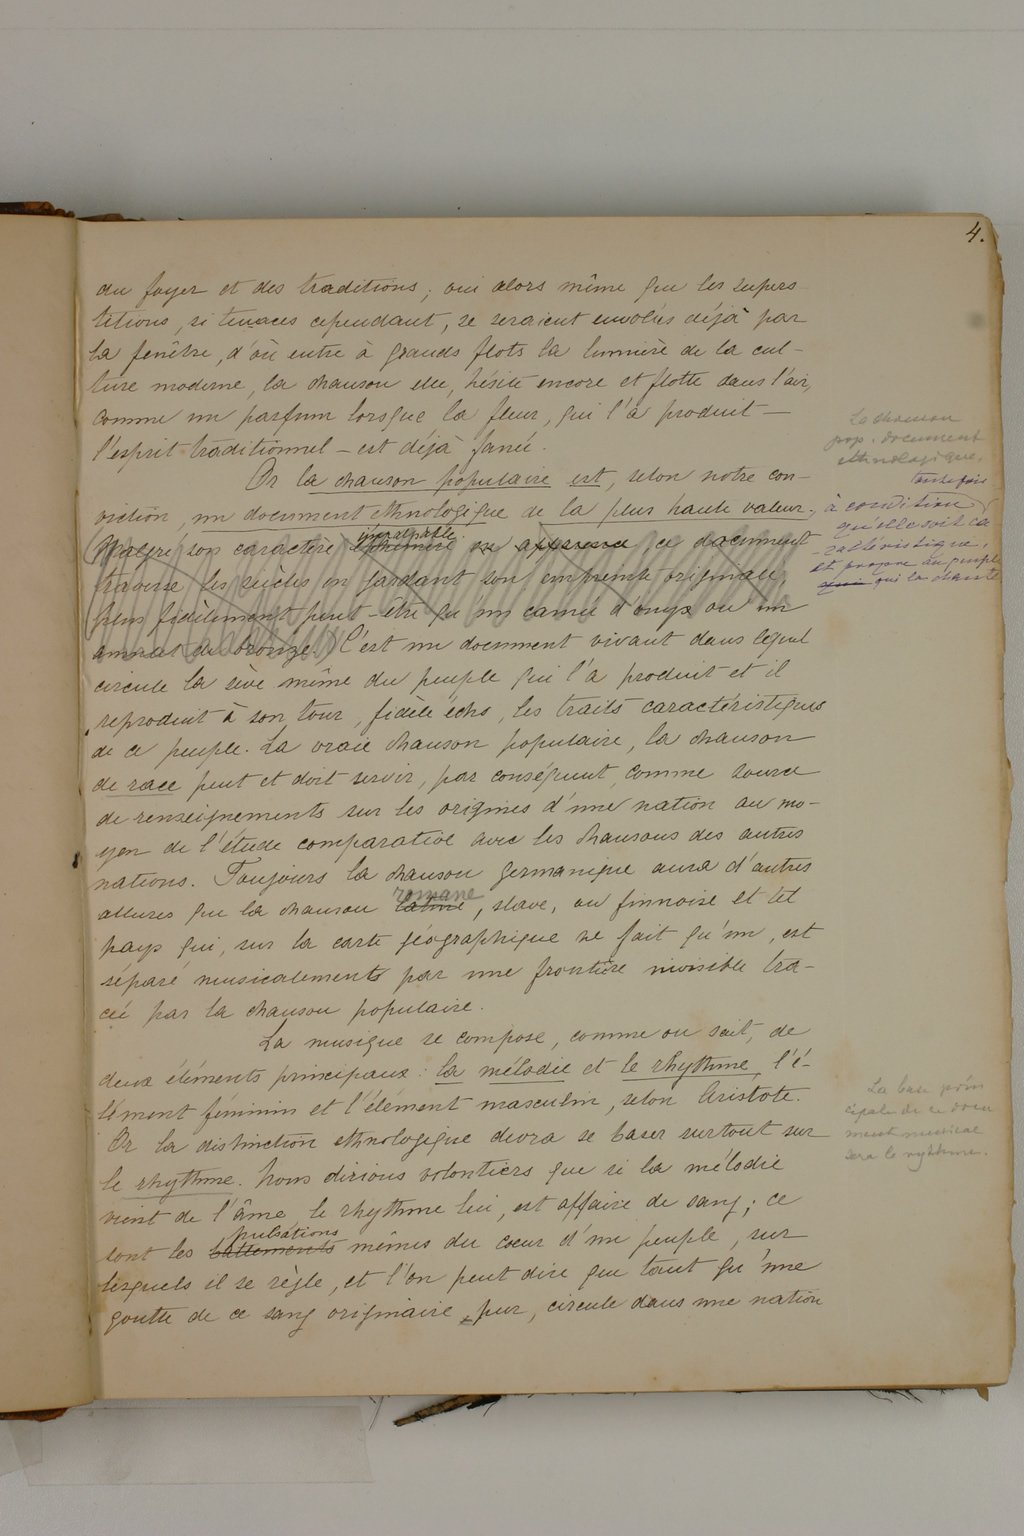 4.
du foyer et des traditions; oui alors même que les supers-
titions, si tenaces cependant, se seraient envolées déjà par
la fenêtre, d'où entre à grands flots la lumière de la cul-
ture moderne, la chanson elle, hésite encore et flotte dans l'air,
comme un parfum lorsque la fleur, qui l'a produit —
l'esprit traditionnel — est déjà fanée.
Or la chanson populaire est, selon notre con-
viction, un document ethnologique de la plus haute valeur,
La chanson
pop. document
ethnologique.
toutefois
à condition
qu'elle soit ca
ractéristique,
et propre au peuple
qui qui la chante
impalpable
Malgré son caractère éphémère en apparence, ce document
traverse les siècles en gardant son empreinte originale,
plus fidèlement peut-être qu'un camée d'onyx ou un
anneau de bronze.) C'est un document vivant dans lequel
circule la sève même du peuple qui l'a produit et il
reproduit à son tour, fidèle écho, les traits caractéristiques
de ce peuple. La vraie chanson populaire, la chanson
de race peut et doit servir, par conséquent, comme source
de renseignements sur les origines d'une nation au mo-
yen de l'étude comparative avec les chansons des autres
nations. Toujours la chanson germanique aura d'autres
romane
allures que la chanson latine, slave, ou finnoise et tel
pays qui, sur la carte géographique ne fait qu'un, est
séparé musicalement par une frontière invisible tra-
cée par la chanson populaire.
La musique se compose, comme on sait, de
deux éléments principaux: la mélodie et le rhythme, l'é-
lément féminin et l'élément masculin, selon Aristote.
Or la distinction ethnologique devra se baser surtout sur
le rhythme. Nous dirions volontiers que si la mélodie
La base prin
cipale de ce docu
ment musical
sera le rythme.
vient de l'âme, le rhythme lui, est affaire de sang; ce
pulsations
sont les battements mêmes du coeur d'un peuple, sur
lesquels il se règle, et l'on peut dire que tant qu'une
goutte de ce sang originaire, pur, circule dans une nation